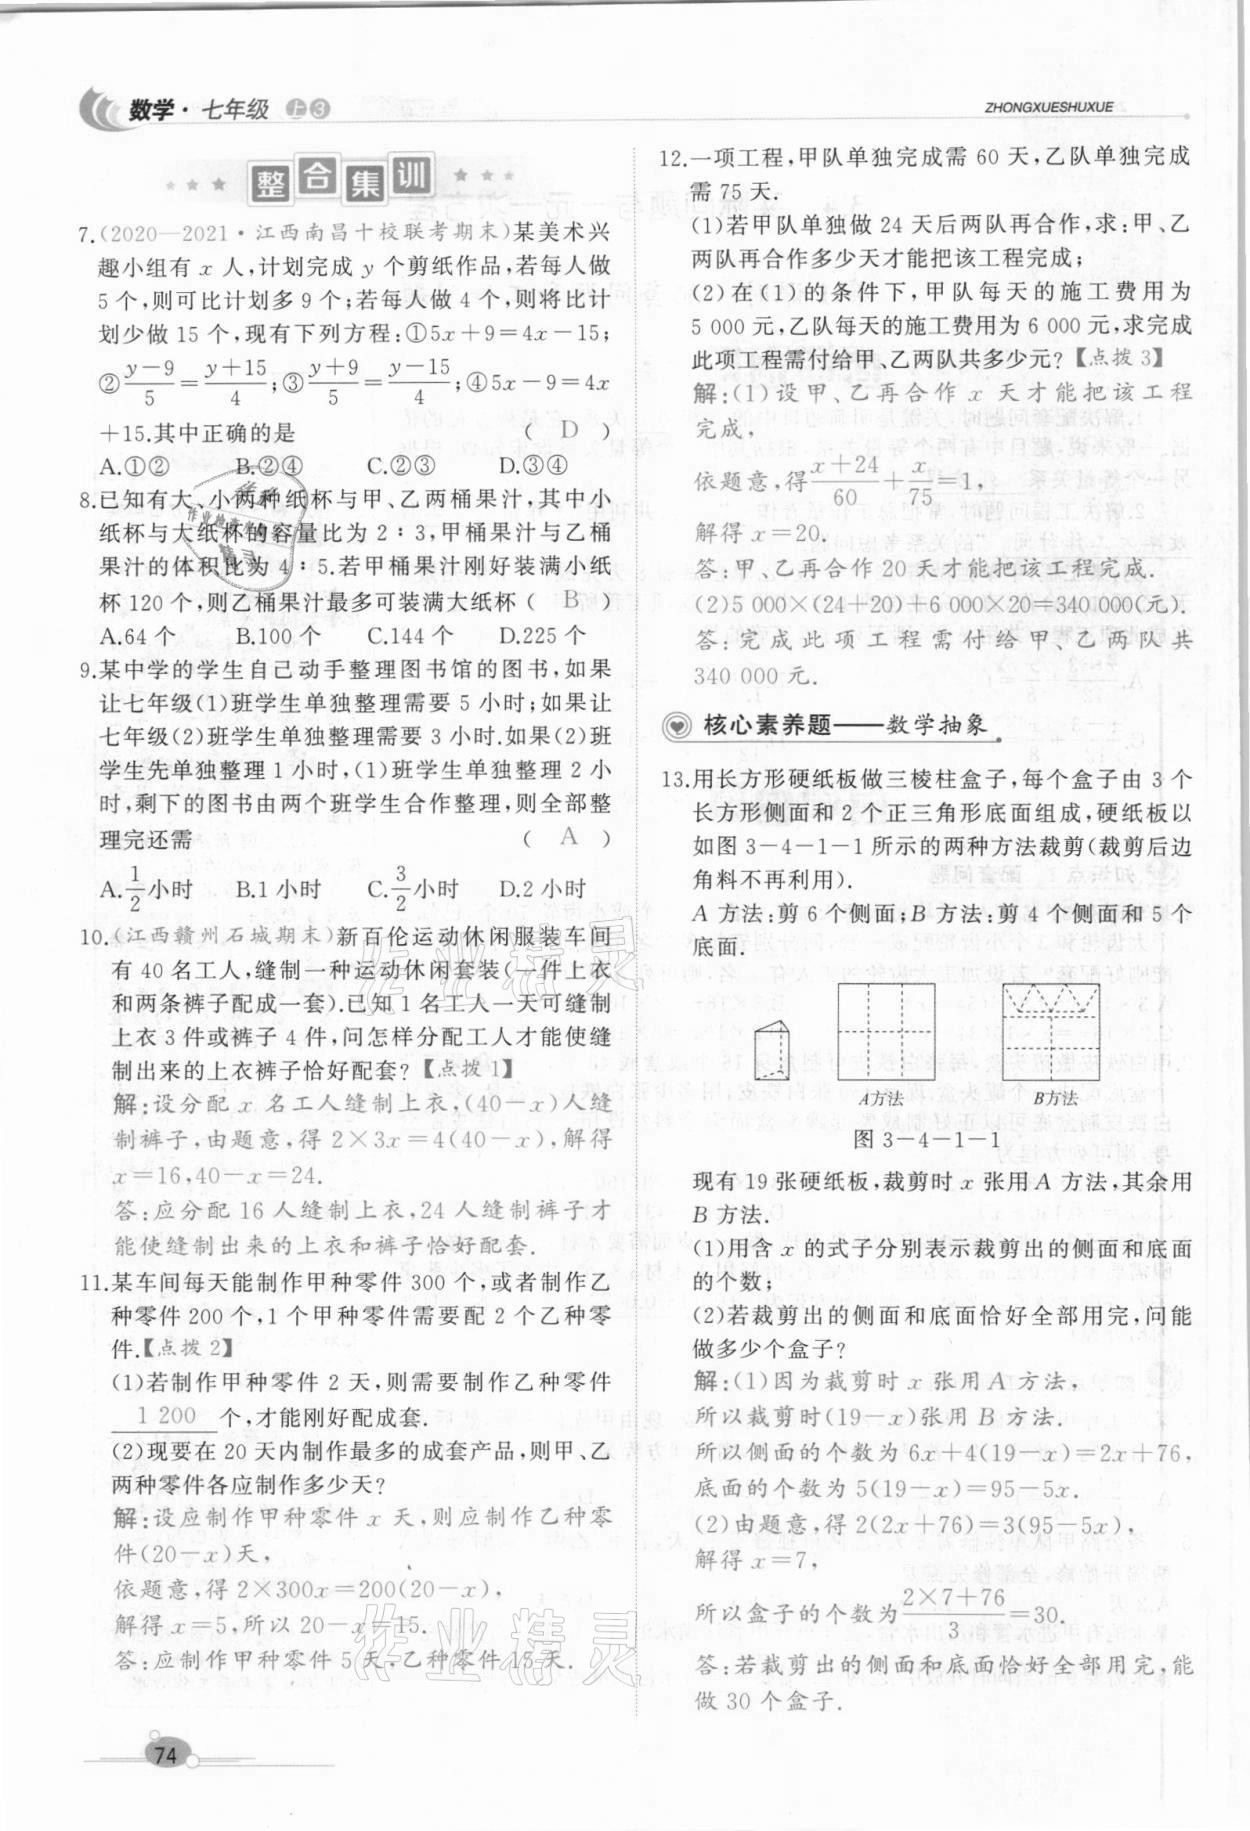 数学·七年级 上 3
ZHONGXUESHUXUE
整合集训
7.(2020—2021·江西南昌十校联考期末)某美术兴
趣小组有 x 人,计划完成 y 个剪纸作品,若每人做
5 个,则可比计划多 9 个;若每人做 4 个,则将比计
划少做 15 个,现有下列方程:①5x+9=4x-15;
②(y-9)/5=(y+15)/4;③(y+9)/5=(y-15)/4;④5x-9=4x
+15.其中正确的是 ( D )
A.①② B.②④ C.②③ D.③④
8.已知有大、小两种纸杯与甲、乙两桶果汁,其中小
纸杯与大纸杯的容量比为 2∶3,甲桶果汁与乙桶
果汁的体积比为 4∶5.若甲桶果汁刚好装满小纸
杯 120 个,则乙桶果汁最多可装满大纸杯( B )
A.64 个 B.100 个 C.144 个 D.225 个
9.某中学的学生自己动手整理图书馆的图书,如果
让七年级(1)班学生单独整理需要 5 小时;如果让
七年级(2)班学生单独整理需要 3 小时.如果(2)班
学生先单独整理 1 小时,(1)班学生单独整理 2 小
时,剩下的图书由两个班学生合作整理,则全部整
理完还需 ( A )
A.1/2小时 B.1 小时 C.3/2小时 D.2 小时
10.(江西赣州石城期末)新百伦运动休闲服装车间
有 40 名工人,缝制一种运动休闲套装(一件上衣
和两条裤子配成一套).已知 1 名工人一天可缝制
上衣 3 件或裤子 4 件,问怎样分配工人才能使缝
制出来的上衣裤子恰好配套?【点拨 1】
解:设分配 x 名工人缝制上衣,(40-x)人缝
制裤子,由题意,得 2×3x=4(40-x),解得
x=16,40-x=24.
答:应分配 16 人缝制上衣,24 人缝制裤子才
能使缝制出来的上衣和裤子恰好配套.
11.某车间每天能制作甲种零件 300 个,或者制作乙
种零件 200 个,1 个甲种零件需要配 2 个乙种零
件.【点拨 2】
(1)若制作甲种零件 2 天,则需要制作乙种零件
1 200 个,才能刚好配成套.
(2)现要在 20 天内制作最多的成套产品,则甲、乙
两种零件各应制作多少天?
解:设应制作甲种零件 x 天,则应制作乙种零
件(20-x)天,
依题意,得 2×300x=200(20-x),
解得 x=5,所以 20-x=15.
答:应制作甲种零件 5 天,乙种零件 15 天.
74
12.一项工程,甲队单独完成需 60 天,乙队单独完成
需 75 天.
(1)若甲队单独做 24 天后两队再合作,求:甲、乙
两队再合作多少天才能把该工程完成;
(2)在(1)的条件下,甲队每天的施工费用为
5 000 元,乙队每天的施工费用为 6 000 元,求完成
此项工程需付给甲、乙两队共多少元?【点拨 3】
解:(1)设甲、乙再合作 x 天才能把该工程
完成,
依题意,得(x+24)/60+x/75=1,
解得 x=20.
答:甲、乙再合作 20 天才能把该工程完成.
(2)5 000×(24+20)+6 000×20=340 000(元).
答:完成此项工程需付给甲、乙两队共
340 000 元.
核心素养题——数学抽象
13.用长方形硬纸板做三棱柱盒子,每个盒子由 3 个
长方形侧面和 2 个正三角形底面组成,硬纸板以
如图 3-4-1-1 所示的两种方法裁剪(裁剪后边
角料不再利用).
A 方法:剪 6 个侧面;B 方法:剪 4 个侧面和 5 个
底面.
A方法 B方法
图 3-4-1-1
现有 19 张硬纸板,裁剪时 x 张用 A 方法,其余用
B 方法.
(1)用含 x 的式子分别表示裁剪出的侧面和底面
的个数;
(2)若裁剪出的侧面和底面恰好全部用完,问能
做多少个盒子?
解:(1)因为裁剪时 x 张用 A 方法,
所以裁剪时(19-x)张用 B 方法.
所以侧面的个数为 6x+4(19-x)=2x+76,
底面的个数为 5(19-x)=95-5x.
(2)由题意,得 2(2x+76)=3(95-5x),
解得 x=7,
所以盒子的个数为(2×7+76)/3=30.
答:若裁剪出的侧面和底面恰好全部用完,能
做 30 个盒子.
作业精灵
作业精灵